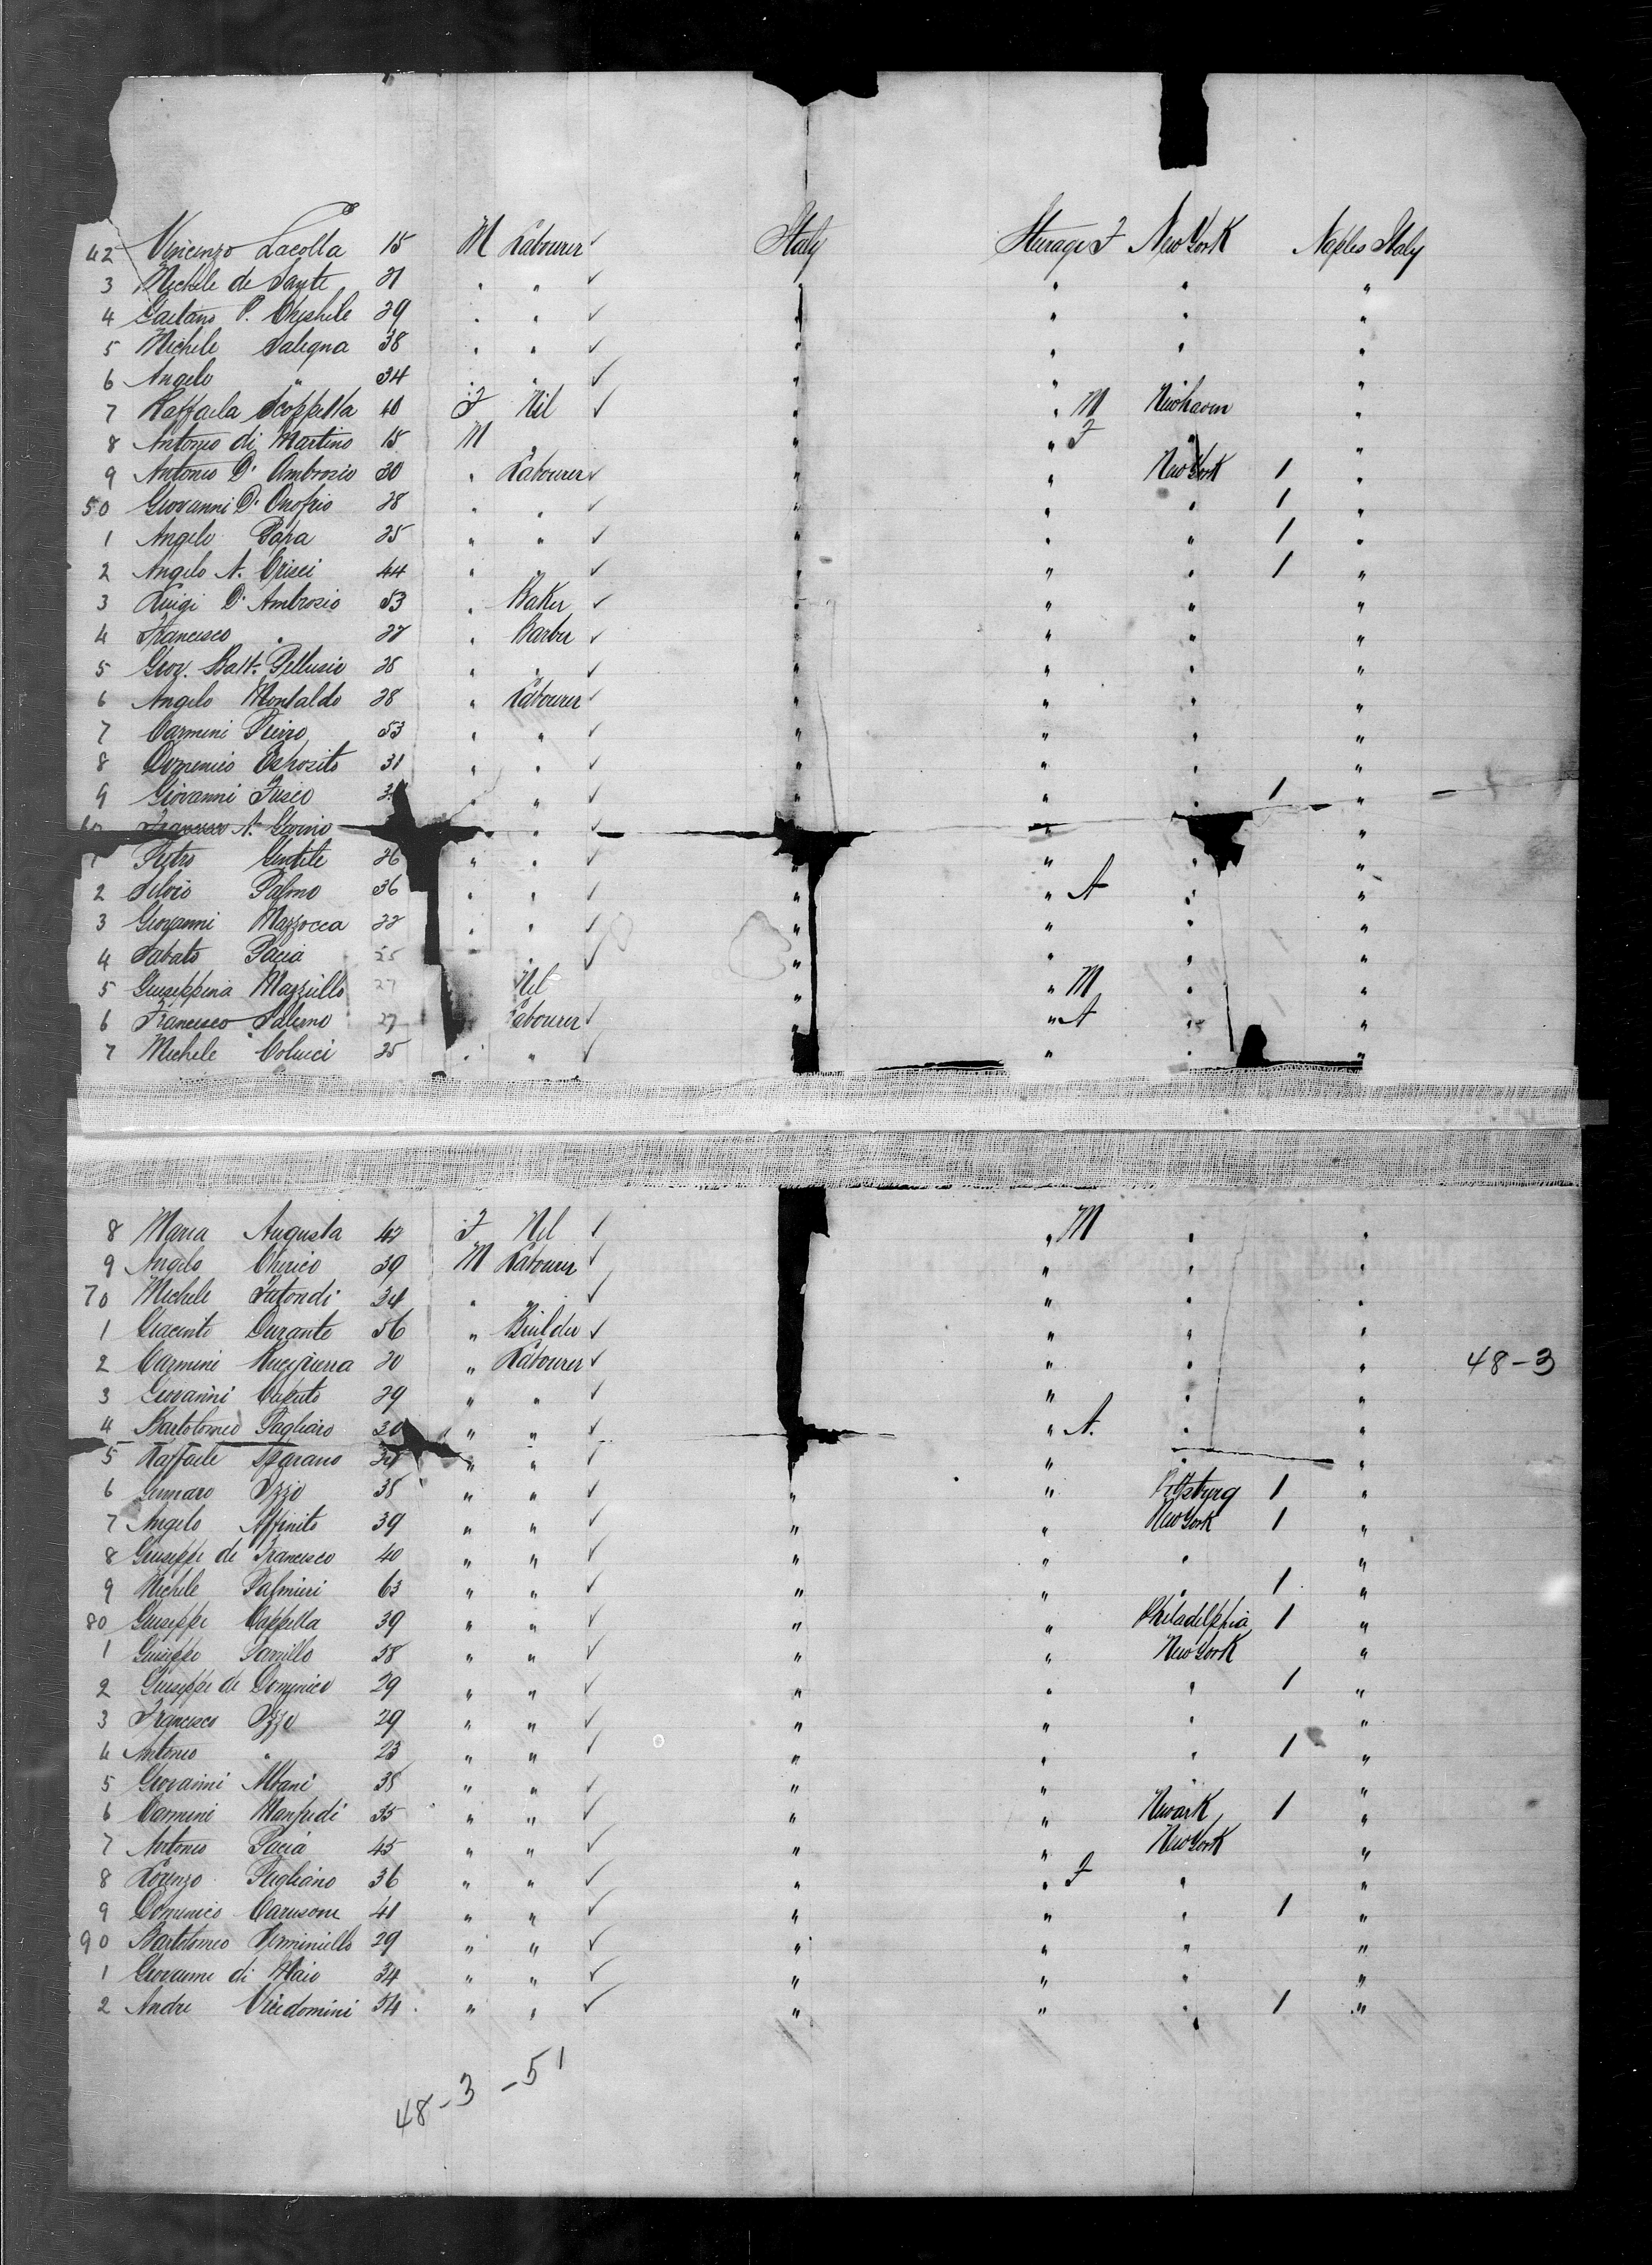 42 Vincenzo Lacolla 15 M Labourer ✓ Italy Steerage F New York Naples Italy
3 Michele de Sante 21 " " ✓ " " " "
4 Gaetano P. 29 " " ✓ " " " "
5 Michele Salegna 38 " " ✓ " " " "
6 Angelo " 34 " " ✓ " " " "
7 Raffaela Scoppetta 40 F Nil ✓ " " M Newhaven "
8 Antonio di Martino 15 M " " " F " "
9 Antonio D'Ambrosio 30 " Labourer ✓ " " New York 1 "
50 Giovanni D'Onofrio 28 " " ✓ " " " 1 "
1 Angelo Papa 25 " " ✓ " " " 1 "
2 Angelo A. Crisci 44 " " ✓ " " " 1 "
3 Luigi D'Ambrosio 53 " Baker ✓ " " " "
4 Francesco " 27 " Barber ✓ " " " "
5 Giov. Batt. Pellusio 25 " " ✓ " " " "
6 Angelo Montaldo 28 " Labourer ✓ " " " "
7 Carmini Pierro 53 " " ✓ " " " "
8 Domenico Esposito 31 " " ✓ " " " "
9 Giovanni Fusco " " ✓ " " " 1 "
60 Francesco A. Iborio " " ✓ " " "
1 Pietro Gentile 26 " " ✓ " " " "
2 Silvio Palmo 36 " " ✓ " " A " "
3 Giovanni Mazzocca 22 " " ✓ " " " "
4 Sabato Pacia 25 " ✓ " " " "
5 Giuseppina Mazzullo 27 Nil " " M " "
6 Francesco Salerno 27 Labourer ✓ " " A " "
7 Michele Colucci 25 " " ✓ " " "
8 Maria Augusta 42 F Nil ✓ " M " "
9 Angelo Chirico 39 M Labourer ✓ " " "
70 Michele 34 " " ✓ " " "
1 Giacinto Durante 56 " Builder ✓ " " "
2 Carmini 20 " Labourer ✓ " " " 48-3
3 Giovanni Caputo 29 " " ✓ " " "
4 Bartolomeo Pagliaro 30 " " ✓ " A. " "
5 Raffaele " " ✓ " " "
6 Gennaro Izzo 35 " " ✓ " " Pittsburg 1 "
7 Angelo Affinito 39 " " ✓ " " New York 1 "
8 Giuseppe de Francesco 40 " " ✓ " " " "
9 Michele Palmieri 63 " " ✓ " " " 1 "
80 Giuseppe Cappella 39 " " ✓ " " Philadelphia 1 "
1 Giuseppe 58 " " ✓ " " New York "
2 Giuseppe de Domenico 29 " " ✓ " " " 1 "
3 Francesco Izzo 29 " " ✓ " " " "
4 Antonio " 23 " " ✓ " " " 1 "
5 Giovanni Albani 35 " " ✓ " " " "
6 Carmini Manfredi 35 " " ✓ " " Newark 1 "
7 Antonio Pacia 45 " " ✓ " " New York "
8 Lorenzo Pugliano 36 " " ✓ " " F " "
9 Domenico Carusone 41 " " ✓ " " " 1 "
90 Bartolomeo Verminiello 29 " " ✓ " " " "
1 Giovanni di Maio 34 " " ✓ " " " "
2 Andre Vicedomini 54 " " ✓ " " " 1 "
48-3-51